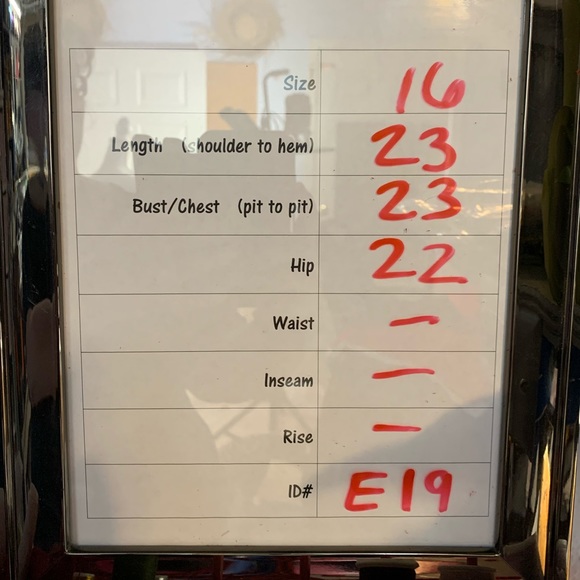 Size 16
Length (shoulder to hem) 23
Bust/Chest (pit to pit) 23
Hip 22
Waist —
Inseam —
Rise —
ID# E19